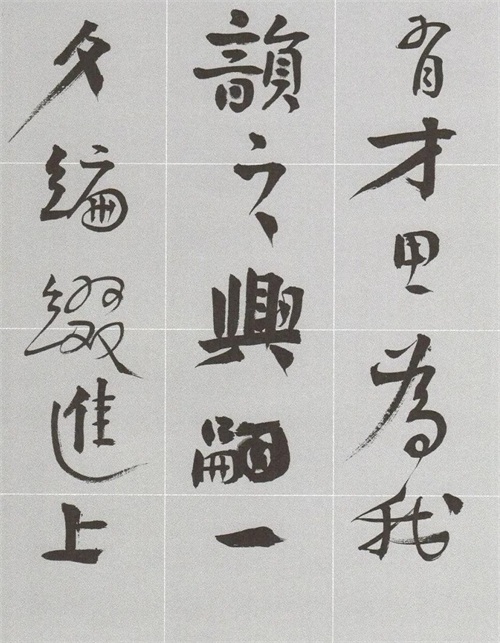 有才思為我
韻之興嗣一
夕編綴進上